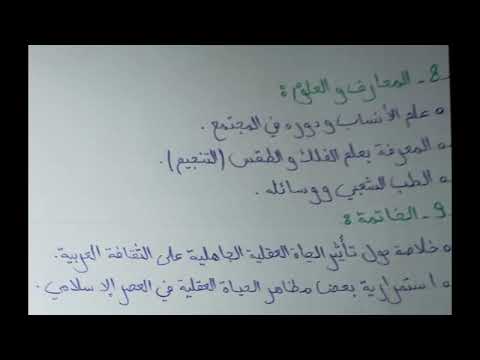 8- المعارف والعلوم :
• علم الأنساب ودوره في المجتمع .
• المعرفة بعلم الفلك والطقس (التنجيم).
• الطب الشعبي ووسائله .
9- الخاتمة :
• خلاصة حول تأثير الحياة العقلية الجاهلية على الثقافة العربية.
• استمرارية بعض مظاهر الحياة العقلية في العصر الإسلامي .